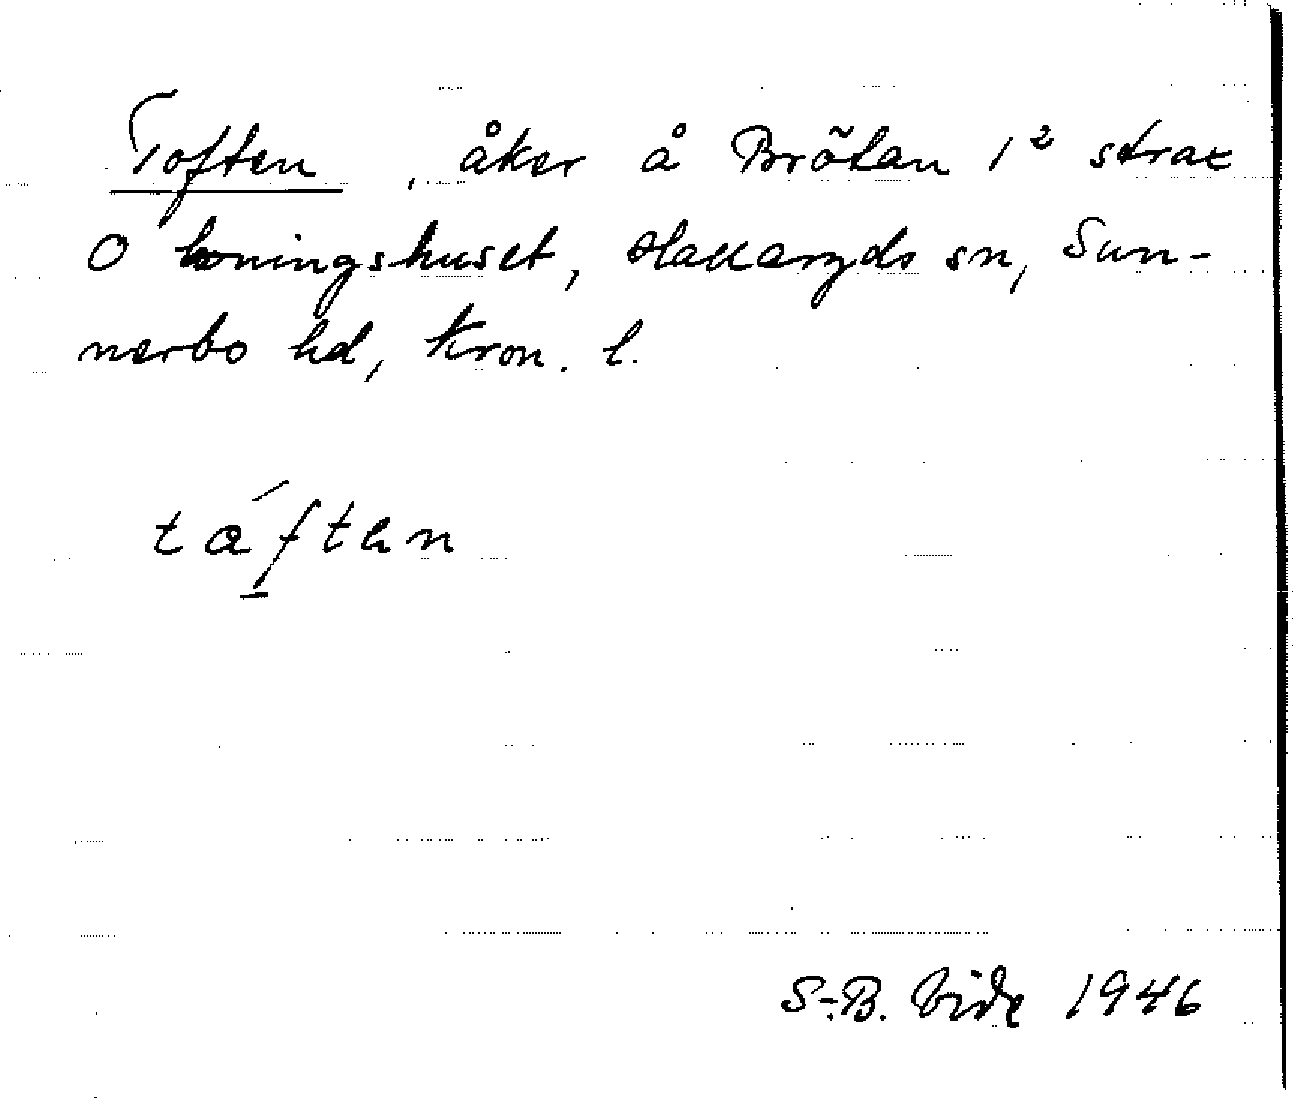 Toften, åker å Brötan 1² strax
O boningshuset, Hallaryds sn, Sun-
nerbo hd, Kron. l.
táften
S.-B. Vide 1946